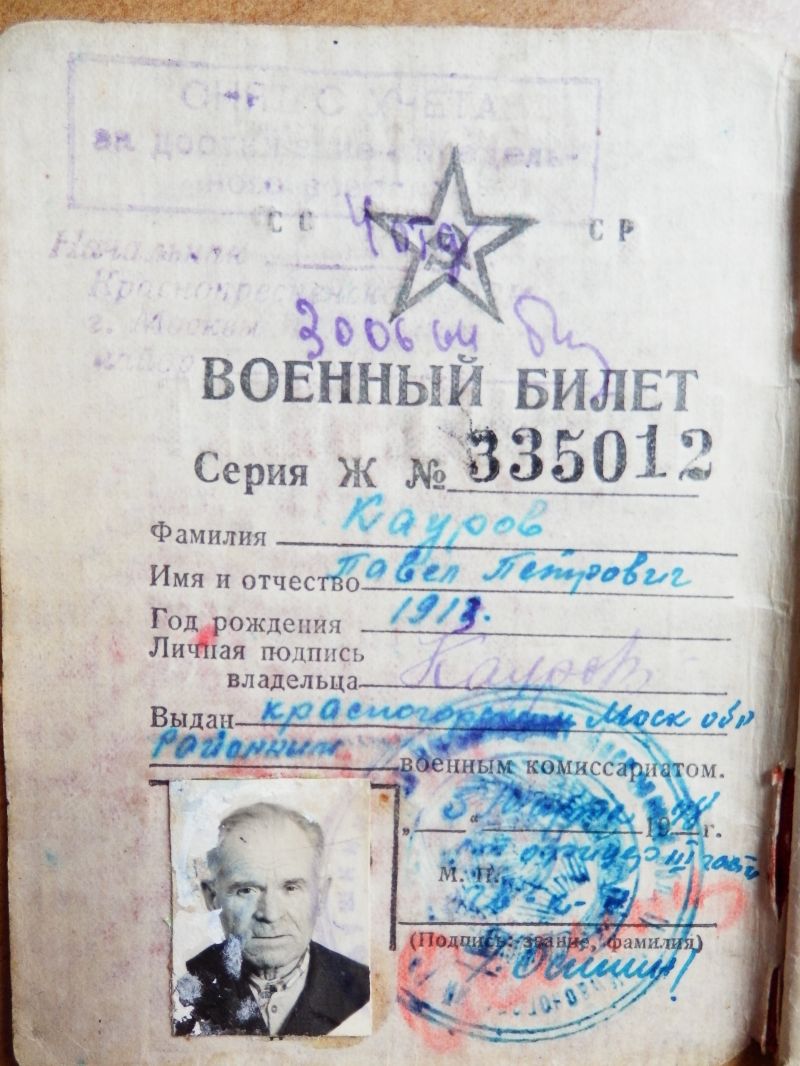 СНЯТ С УЧЕТА
за достижение предель-
ного возраста
СС СР
4 отд
Начальник
Краснопресненского
г. Москвы
ВОЕННЫЙ БИЛЕТ
Серия Ж № 335012
Фамилия Кауров
Имя и отчество Павел Петрович
Год рождения 1913.
Личная подпись
владельца Кауров
Выдан красногорским Моск обл
районным
военным комиссариатом.
„ 5 “ 19 48 г.
М. П. III части
(Подпись, звание, фамилия)